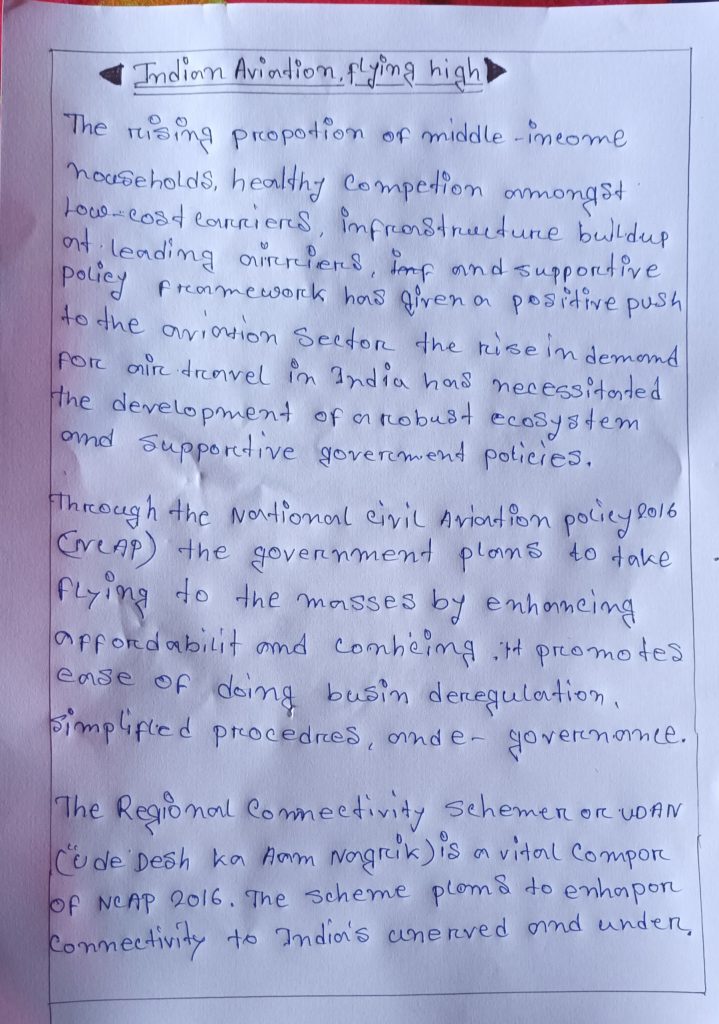 Indian Aviation, flying high
The rising propotion of middle-income
households, healthy Competion amongst
Low-cost carriers, infrastructure buildup
at leading airrriers, and supportive
policy framework has given a positive push
to the aviation Sector the rise in demand
for air travel in India has necessitated
the development of a robust ecosystem
and supportive goverment policies.
Through the National Civil Aviation policy 2016
(NCAP) the government plans to take
flying to the masses by enhancing
affordabilit and conheing, it promotes
ease of doing busin deregulation,
Simplified procedres, and e- governance.
The Regional Connectivity Schemer or UDAN
(ude Desh ka Aam Nagrik) is a vital Compor
of NCAP 2016. The scheme plans to enhapor
Connectivity to India's unerved and under.